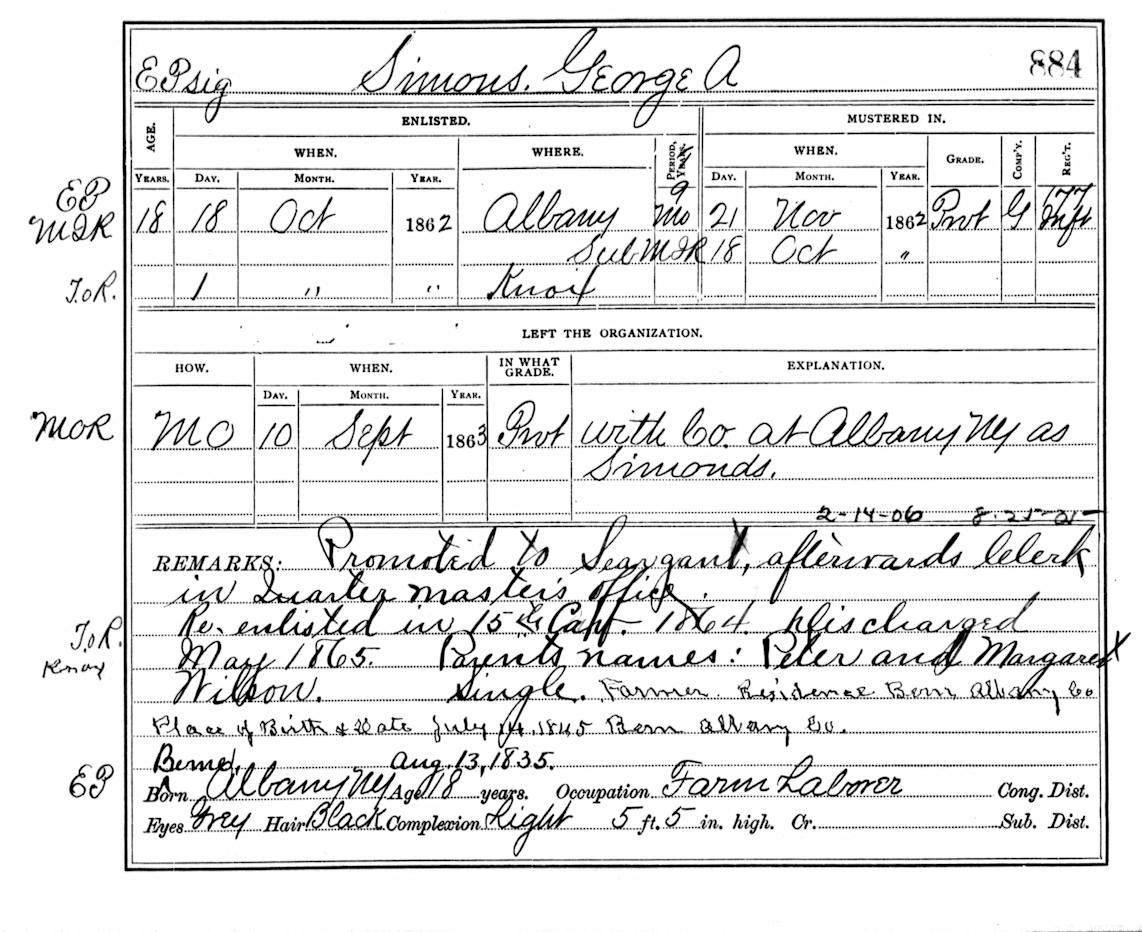 EPsig Simons. George A 884
AGE. ENLISTED. MUSTERED IN.
WHEN. WHERE. PERIOD, YEARS. WHEN. GRADE. COMP'Y. REG'T.
YEARS. DAY. MONTH. YEAR. DAY. MONTH. YEAR.
EP 9 177
MIR 18 18 Oct 1862 Albany Mo 21 Nov 1862 Pvt G Inft
Sub MIR 18 Oct "
T.o.R. 1 " " Knox
LEFT THE ORGANIZATION.
HOW. WHEN. IN WHAT GRADE. EXPLANATION.
DAY. MONTH. YEAR.
MOR MO 10 Sept 1863 Pvt with Co. at Albany NY as
Simonds.
2-14-06
REMARKS: Promoted to Seargant, afterwards Clerk
in Quarter master's office.
Re-enlisted in 15 1864. Discharged
T.o.R. Knox May 1865. Parents names: Peter and Margaret
Wilson. Single. Farmer. Residence Bern Albany Co
Place of Birth & Date July 14, 1845 Bern Albany Co.
Berne, Aug. 13, 1835.
EP Born Albany NY Age 18 years. Occupation Farm Laborer Cong. Dist.
Eyes Grey Hair Black Complexion Light 5 ft. 5 in. high. Cr. Sub. Dist.